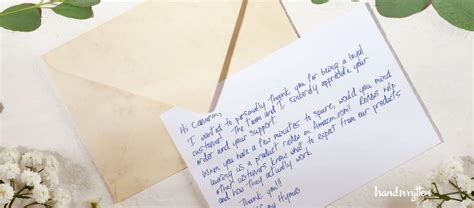 Hi Cameron,
I want to personally thank you for being a loyal
customer! The team and I sincerely appreciate your
order and your support.
When you have a few minutes to spare, would you mind
leaving us a product review on Amazon.com? Reviews help
other customers know what to expect from our products
and how they actually work.
Thank you!
Hymas
handwrytten